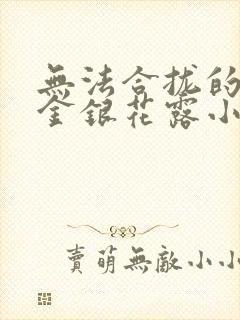 無法合拢的
金銀花露小
賣萌無敵小小